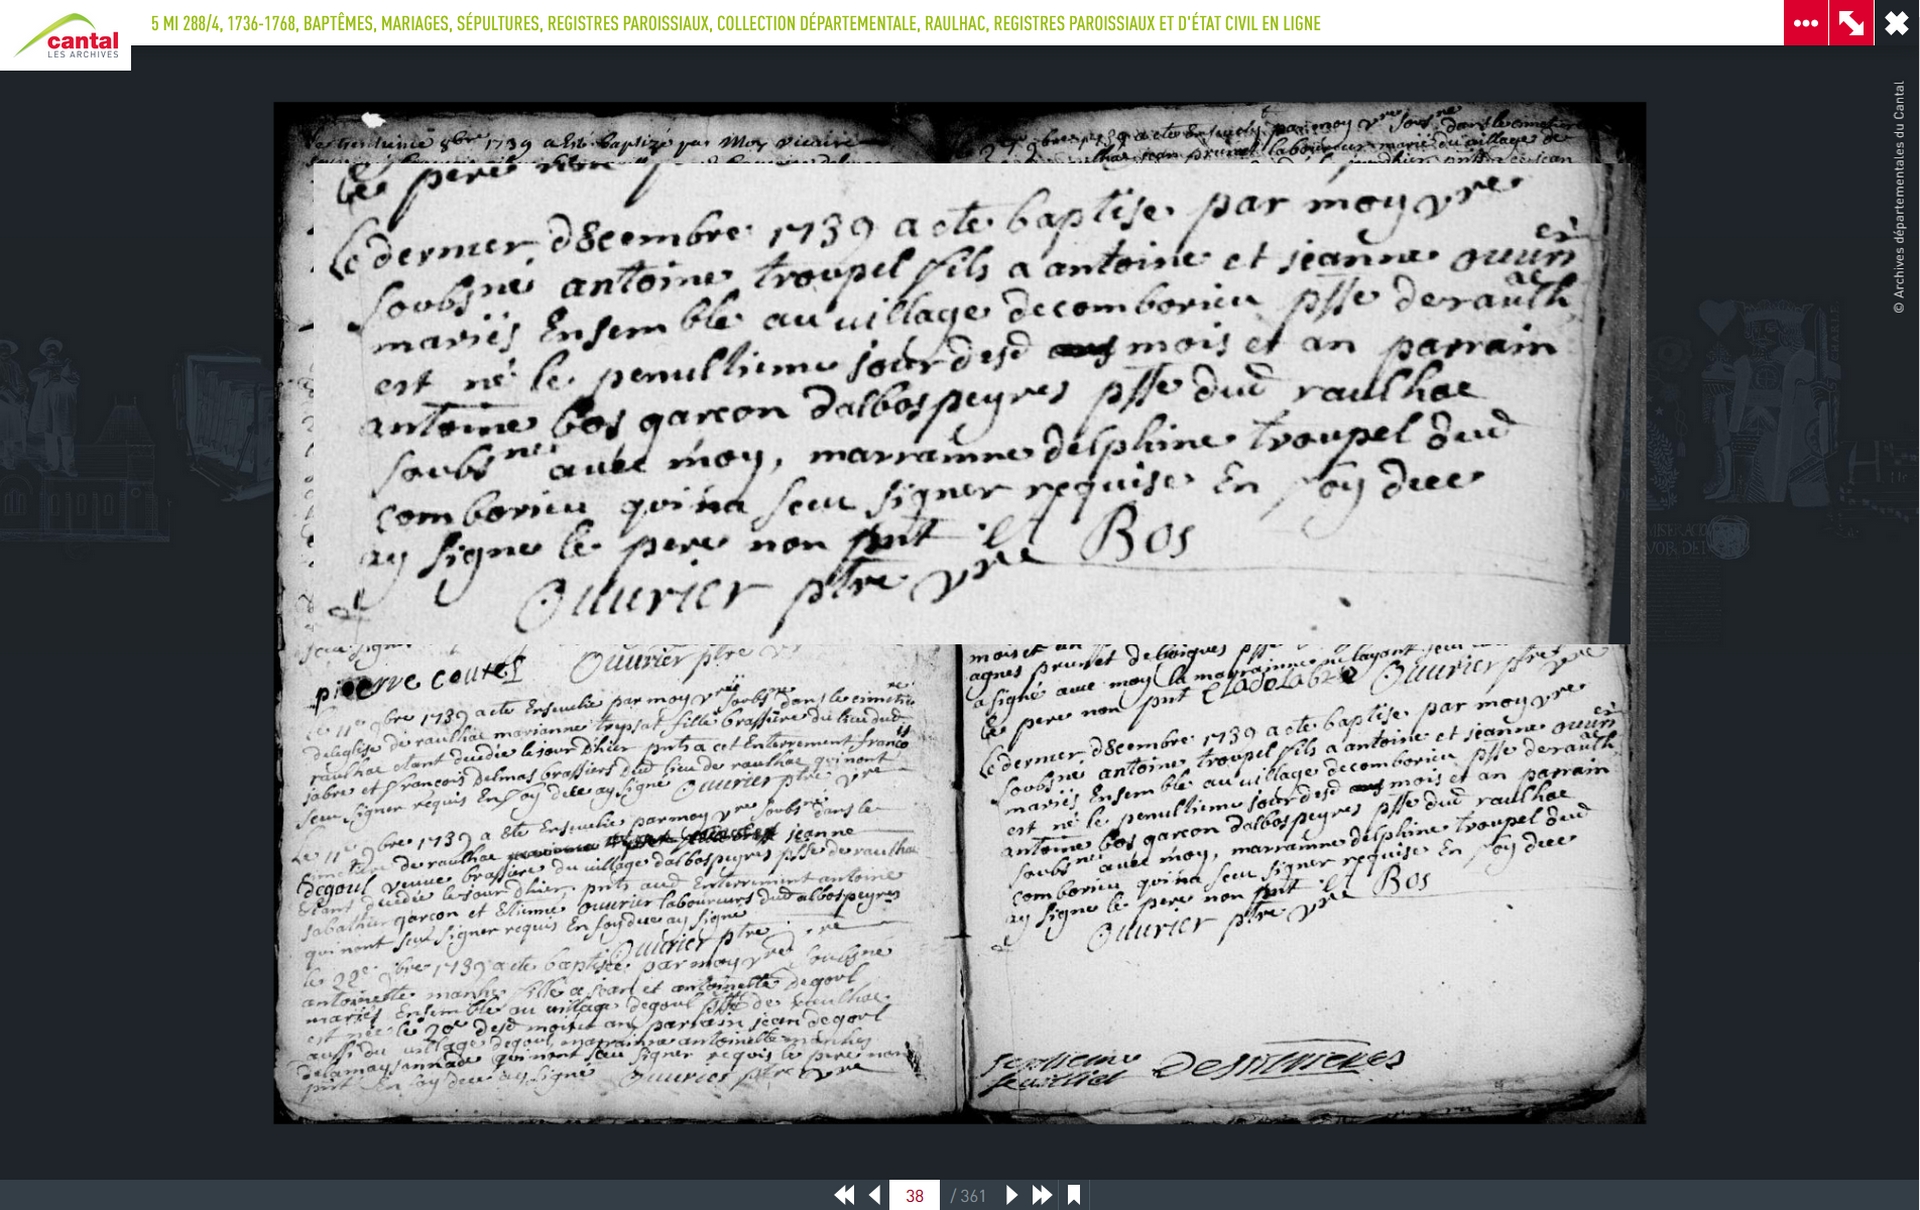 5 MI 288/4, 1736-1768, BAPTÊMES, MARIAGES, SÉPULTURES, REGISTRES PAROISSIAUX, COLLECTION DÉPARTEMENTALE, RAULHAC, REGISTRES PAROISSIAUX ET D'ÉTAT CIVIL EN LIGNE
cantal
LES ARCHIVES
© Archives départementales du Cantal
Le trentunième 8bre 1739 a esté baptizé par Moy vicaire
le pere non
Le dernier d8cembre 1739 a ete baptise par moy vre
soubsné antoine troupel fils a antoine et jeanne ouurier
mariés Ensemble au uillage de comborieu psse de raulhac
est né le penultieme jour desd mois et an parrain
antoine bos garcon dalbospeyres psse dud raulhac
soubsné auec moy, marrainne delphine troupel dud
comborieu qui na seu signer requise En foy dece
ay signe le pere non pnt Bos
Ouurier ptre vre
Ouurier ptre
pierre coutel
Le 11e 9bre 1739 a ete Enseuelie par moy vre soubsné dans le cimetiere
de leglise de raulhac marianne trepsat fille brassiere du lieu dud
raulhac etant decedée le jour dhier pnts a cet Enterrement francois
jabre et francois delmas brassiers dud lieu de raulhac qui nont
seu signer requis En foy dece ay signe Ouurier ptre vre
Le 11e 9bre 1739 a ete Enseuelie par moy vre soubsné dans le
cimetiere de raulhac jeanne
degoul veuue brassiere du uillage dalbospeyres psse de raulhac
etant decedée le jour dhier pnts aud Enterrement antoine
sabathier garcon et Etienne Ouurier laboureurs dud albospeyres
qui nont seu signer requis En foy dece ay signe
Ouurier ptre vre
le 22e 9bre 1739 a ete baptisée par moy vre soubsné
antoinette manhe fille a jean et antoinette degoul
mariés Ensemble au uillage degoul psse de raulhac
est née le 20e desd mois et an parrain jean degoul
aussi du uillage degoul marrainne antoinette manhes
qui nont seu signer requis le pere non
pnt En foy dece ay signé Ouurier ptre vre
mois et an
agnes prunet
a signé auec moy la marrainne ne layant seu
le pere non pnt Ouurier ptre vre
Le dernier d8cembre 1739 a ete baptise par moy vre
soubsné antoine troupel fils a antoine et jeanne ouurier
mariés Ensemble au uillage de comborieu psse de raulhac
est né le penultieme jour desd mois et an parrain
antoine bos garcon dalbospeyres psse dud raulhac
soubsné auec moy, marrainne delphine troupel dud
comborieu qui na seu signer requise En foy dece
ay signe le pere non pnt Bos
Ouurier ptre vre
feuilliet
38 / 361